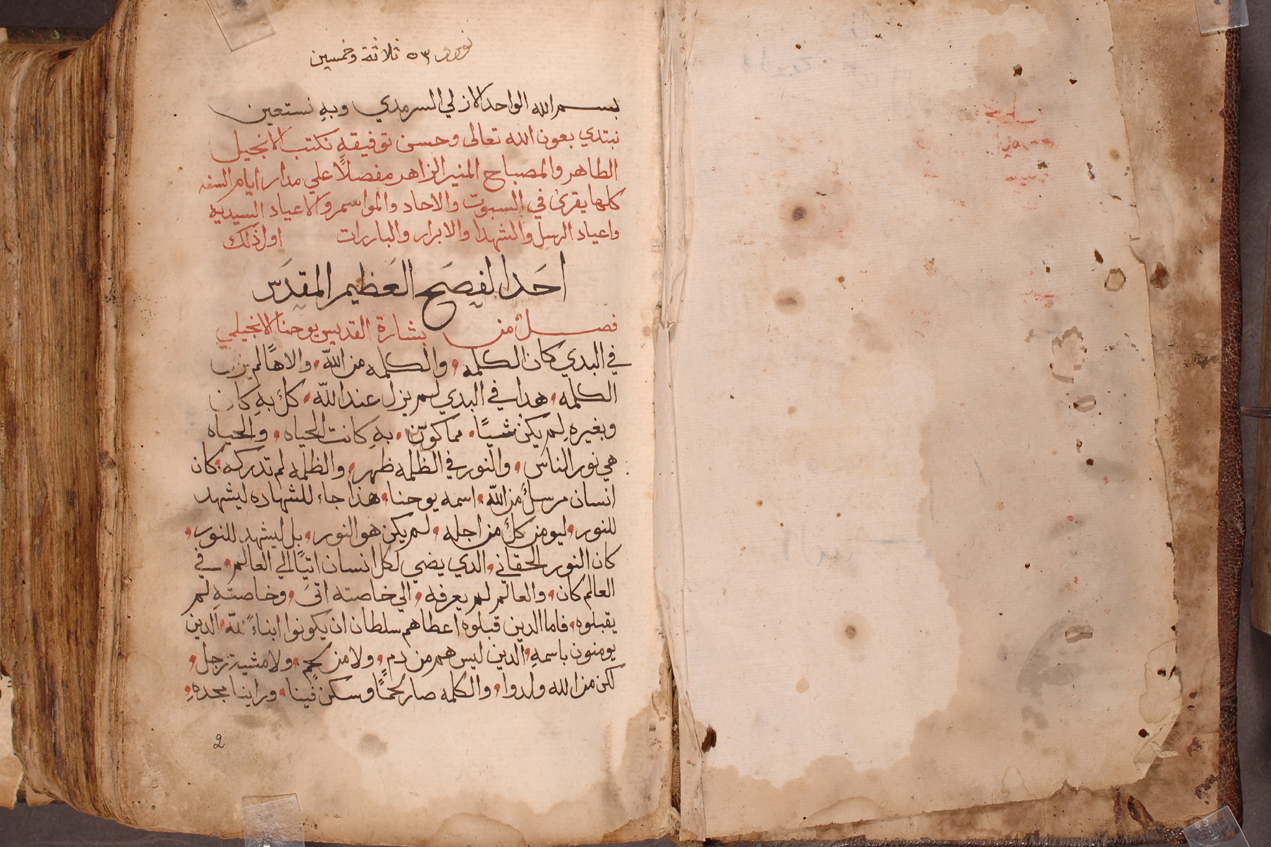 نومرو ٥٣ ثلاثة وخمسين
بسم الله الواحد الازلي السرمدي وبه نستعين
نبتدي بعون الله تعالى وحسن توفيقه نكتب الانجيل
الطاهر والمصباح المنير الزاهر مفصلاً على مدار ايام السنه
كلها يقرى في السبوت والاحاد والمواسم والاعياد السيديه
واعياد الرسل والشهدا والابرار والبارات اول ذلك
احَد الفِصَح العَظيم المقدَس
فصل من بشارة القديس يوحنا الانجيلي
في البدي كان الكلمه والكلمه من الله والاهًا لم يزل
الكلمه هدا في البدي لم يزل عند الله كلٌ به كان
وبغيره لم يكن شيئًا مما كوّن به كانت الحياه والحياه
هي نور الناس والنور في الظلمه ظهر والظلمه لم تدركه كان
انسان مرسلٌ من الله اسمه يوحنا هذا جاء للشهاده ليشهد
للنور ليومن كلٌ من اجله لم يكن هو النور بل ليشهد للنور
كان النور الحقاني الدي يضي لكل انسان اتيًا الي العالم في
العالم كان والعالم لم يعرفه الي خاصته اتىَ وخاصته لم
يقبلوه فاما الدين قبلوه اعطاهم سلطان ان يكونوا ابناء لله الدين
يومنون باسمه الدين ليس هم من دم ولا من لحم ولا مشية رجل
لكن من الله ولدوا والكلمه صار لحمًا وسكن فينا وراينا مجده
2